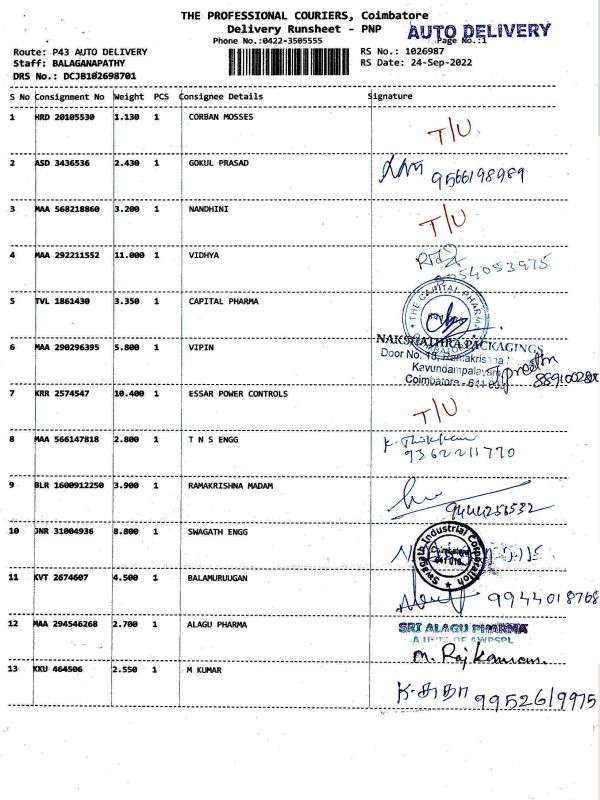 THE PROFESSIONAL COURIERS, Coimbatore
Delivery Runsheet - PNP
AUTO DELIVERY
Phone No.:0422-3505555
Page No.:1
Route: P43 AUTO DELIVERY
RS No.: 1026987
Staff: BALAGANAPATHY
RS Date: 24-Sep-2022
DRS No.: DCJB102698701
S No Consignment No Weight PCS Consignee Details Signature
1 HRD 20105530 1.130 1 CORBAN MOSSES
T/U
2 ASD 3436536 2.430 1 GOKUL PRASAD
9566198989
3 MAA 568218860 3.200 1 NANDHINI
T/U
4 MAA 292211552 11.000 1 VIDHYA
5 TVL 1861430 3.350 1 CAPITAL PHARMA
THE CAPITAL PHARMA
6 MAA 290296395 5.800 1 VIPIN
NAKSHATHRA PACKAGINGS
Door No. 18, Ramakrishna
Kavundampalayam
Coimbatore - 641 030
7 KRR 2574547 10.400 1 ESSAR POWER CONTROLS
T/U
8 MAA 566147818 2.800 1 T N S ENGG
9362211770
9 BLR 1600912250 3.900 1 RAMAKRISHNA MADAM
9444256532
10 JNR 31004936 8.800 1 SWAGATH ENGG
Swagath Industrial Corporation
Coimbatore
11 KVT 2674607 4.500 1 BALAMURUUGAN
9944018768
12 MAA 294546268 2.700 1 ALAGU PHARMA
SRI ALAGU PHARMA
A UNIT OF AWPSPL
M. Rajkumar
13 KKU 464506 2.550 1 M KUMAR
K. சுதா 9952619975